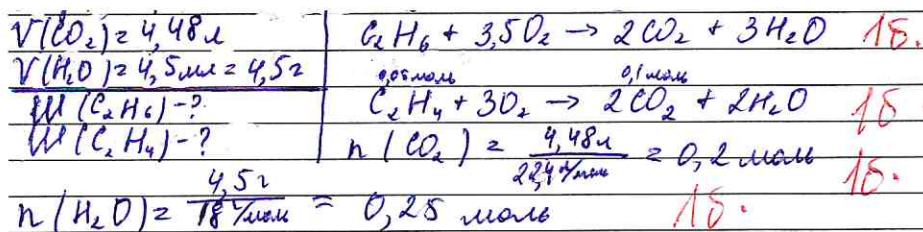 V(CO₂) = 4,48 л
V(H₂O) = 4,5 мл = 4,5 г
W(C₂H₆) - ?
W(C₂H₄) - ?
C₂H₆ + 3,5O₂ → 2CO₂ + 3H₂O 1б.
0,05 моль 0,1 моль
C₂H₄ + 3O₂ → 2CO₂ + 2H₂O 1б
n(CO₂) = 4,48 л / 22,4 л/моль = 0,2 моль 1б.
n(H₂O) = 4,5 г / 18 г/моль = 0,25 моль 1б.